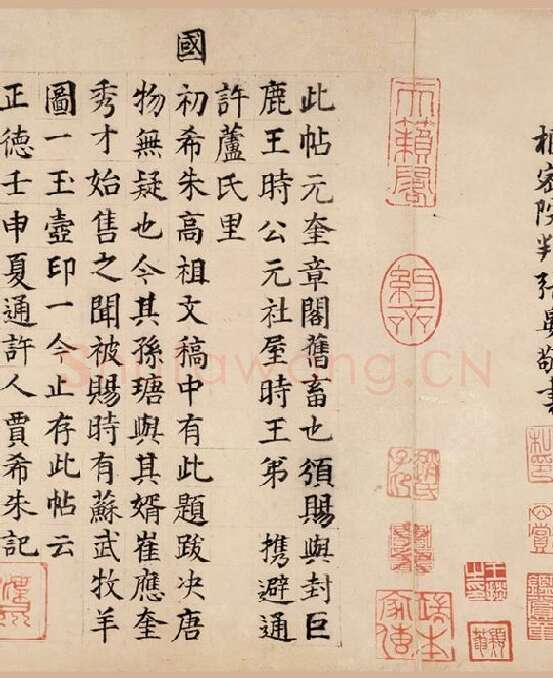 密院判 敬書
天籟閣
此帖元奎章閣舊畜也須賜與封巨
鹿王時公元社屋時王弟 携避通
許蘆氏里
國初希朱高祖文稿中有此題跋决唐
物無疑也今其孫瑭與其婿崔應奎
秀才始售之聞被賜時有蘇武牧羊
圖一玉壺印一今止存此帖云
正德壬申夏通許人賈希朱記
Shufawang.CN